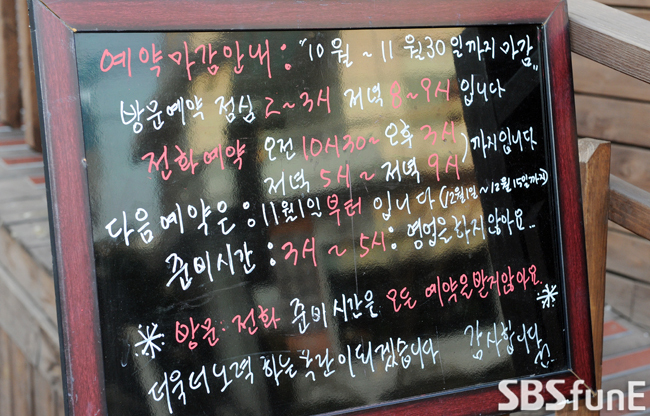 예약마감안내 : "10월 ~ 11월30일까지 마감"
방문예약 점심 2~3시 저녁 8~9시 입니다
전화예약 오전 10시30~ 오후 3시
저녁 5시 ~ 저녁 9시 ) 까지입니다
다음예약은 : 11월1일 부터 입니다 (12월1일 ~ 12월 15일까지)
준비시간 : 3시 ~ 5시 : 영업을하지않아요..
※ 방문·전화 준비시간을 모든 예약을받지않아요 ※
더욱더 노력 하는 목란이되겠습니다 감사합니다
SBSfunE